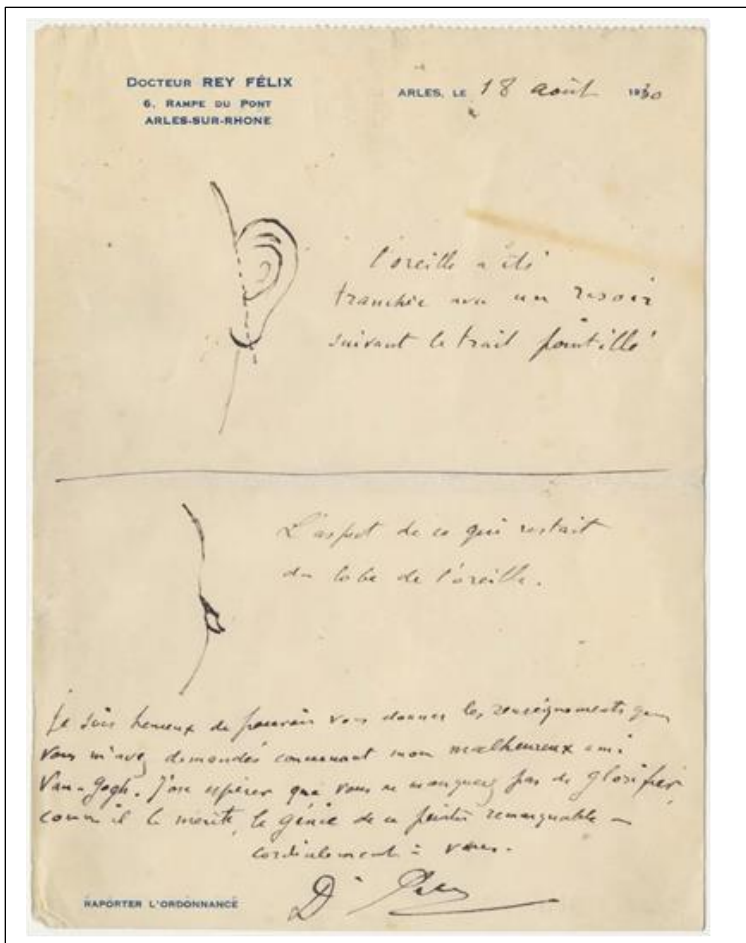 DOCTEUR REY FÉLIX
6, RAMPE DU PONT
ARLES-SUR-RHONE
ARLES, LE 18 août 1930
l'oreille a été
tranchée avec un rasoir
suivant le trait pointillé
L'aspect de ce qui restait
du lobe de l'oreille.
Je suis heureux de pouvoir vous donner les renseignements que
vous m'avez demandés concernant mon malheureux ami
Van-Gogh. J'ose espérer que vous ne manquerez pas de glorifier,
comme il le mérite, le génie de ce peintre remarquable -
cordialement à vous.
Dr Rey
RAPORTER L'ORDONNANCE